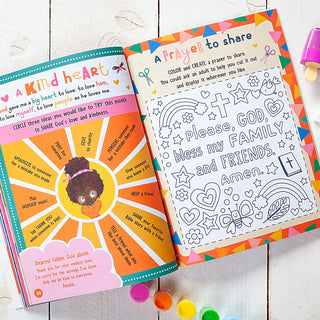 A Kind HeART
God gave me a big heart to love: to love him,
to love myself, to love people as he loves me.
CIRCLE three ideas you would like to TRY this month
to SHARE God's love and kindness.
APOLOGIZE to someone
for a mistake you made
PRAY for
GIVE
to charity
FORGIVE someone
for a mistake they made
Play
WORSHIP music
HELP a friend
Say THANK YOU
SHARE your favorite
Bible story with a friend
TELL a friend what you
like best about them
Dearest Father God above,
Thank you for your endless love.
I'm sorry for the wrongs I've done,
help me be kind to everyone.
Amen.
30
A Prayer to share
COLOR and CREATE a prayer to share.
You could ask an adult to help you cut it out
and display it wherever you like.
Please, GOD,
bless my FAMILY
and FRIENDS.
Amen.